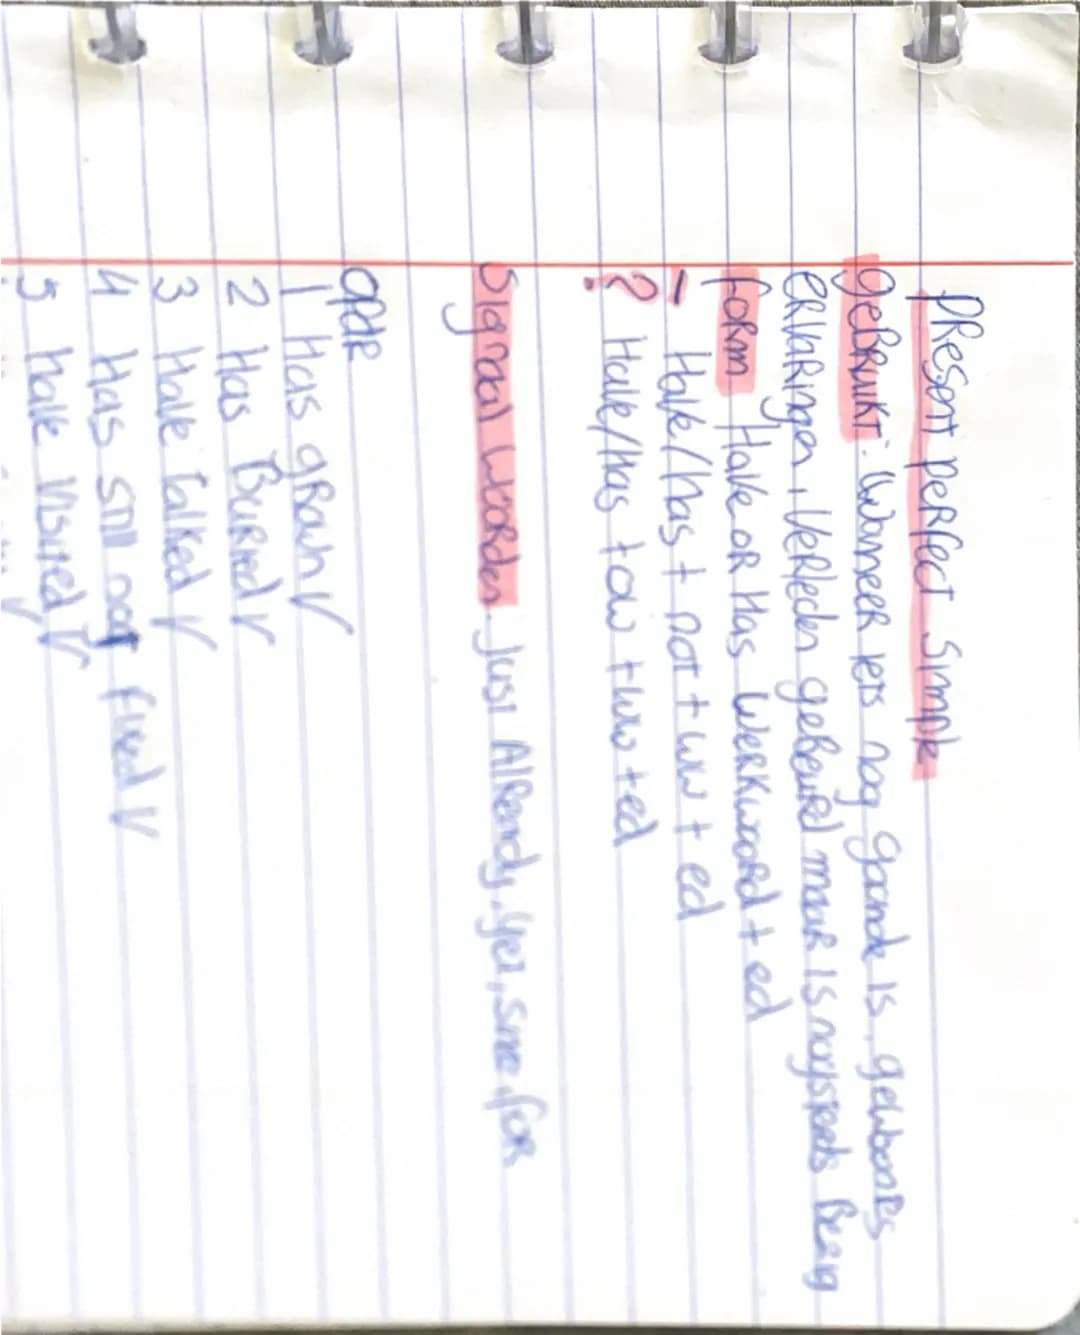 Present perfect simple
gebruikt: wanneer iets nog gaande is, gewoontes
ervaringen, verleden gebeurd maar is nog steeds bezig
form Have or Has werkwoord + ed
- Have/has + not + ww + ed
? Have/Has + ow + ww + ed
Signaal worden. just Already, yet, sine, for
opdr
1 Has grown V
2 Has Buried V
3 Have Talked V
4 Has still not fixed V
5 have visited V